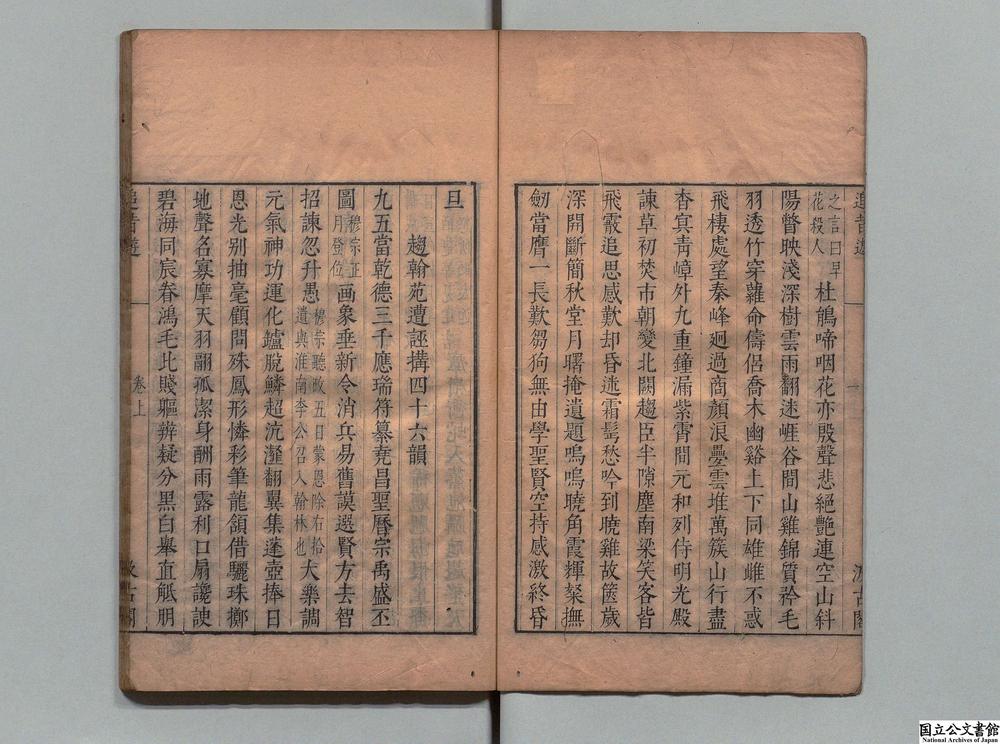 追昔遊
一
汲古閣
之言曰早
花殺人
杜鵑啼咽花亦殷聲悲絕艷連空山斜
陽瞥映淺深樹雲雨翻迷崕谷間山雞錦質矜毛
羽透竹穿蘿命儔侶喬木幽谿上下同雄雌不惑
飛棲處望秦峰廻過商顏浪曡雲堆萬簇山行盡
杳冥靑嶂外九重鐘漏紫霄間元和列侍明光殿
諫草初焚市朝變北闕趨臣半隙塵南梁笑客皆
飛霰追思感歎却昏迷霜髩愁吟到曉雞故篋歲
深開斷簡秋堂月曙掩遺題嗚嗚曉角霞輝粲撫
劒當膺一長歎芻狗無由學聖賢空持感激終昏
旦
趨翰苑遭誣搆四十六韻
九五當乾德三千應瑞符纂堯昌聖曆宗禹盛丕
圖
穆宗正
月登位
画象垂新令消兵易舊謨選賢方去智
招諫忽升愚
穆宗聽政五日蒙恩除右拾
遺與淮南李公召入翰林也
大樂調
元氣神功運化鑪脫鱗超沆瀣翻翼集蓬壺捧日
恩光别抽毫顧問殊鳳形憐彩筆龍頷借驪珠擲
地聲名寡摩天羽翮孤潔身酬雨露利口扇讒諛
碧海同宸眷鴻毛比賤軀辨疑分黑白舉直觝朋
追昔遊
卷上
一
汲古閣
国立公文書館
National Archives of Japan